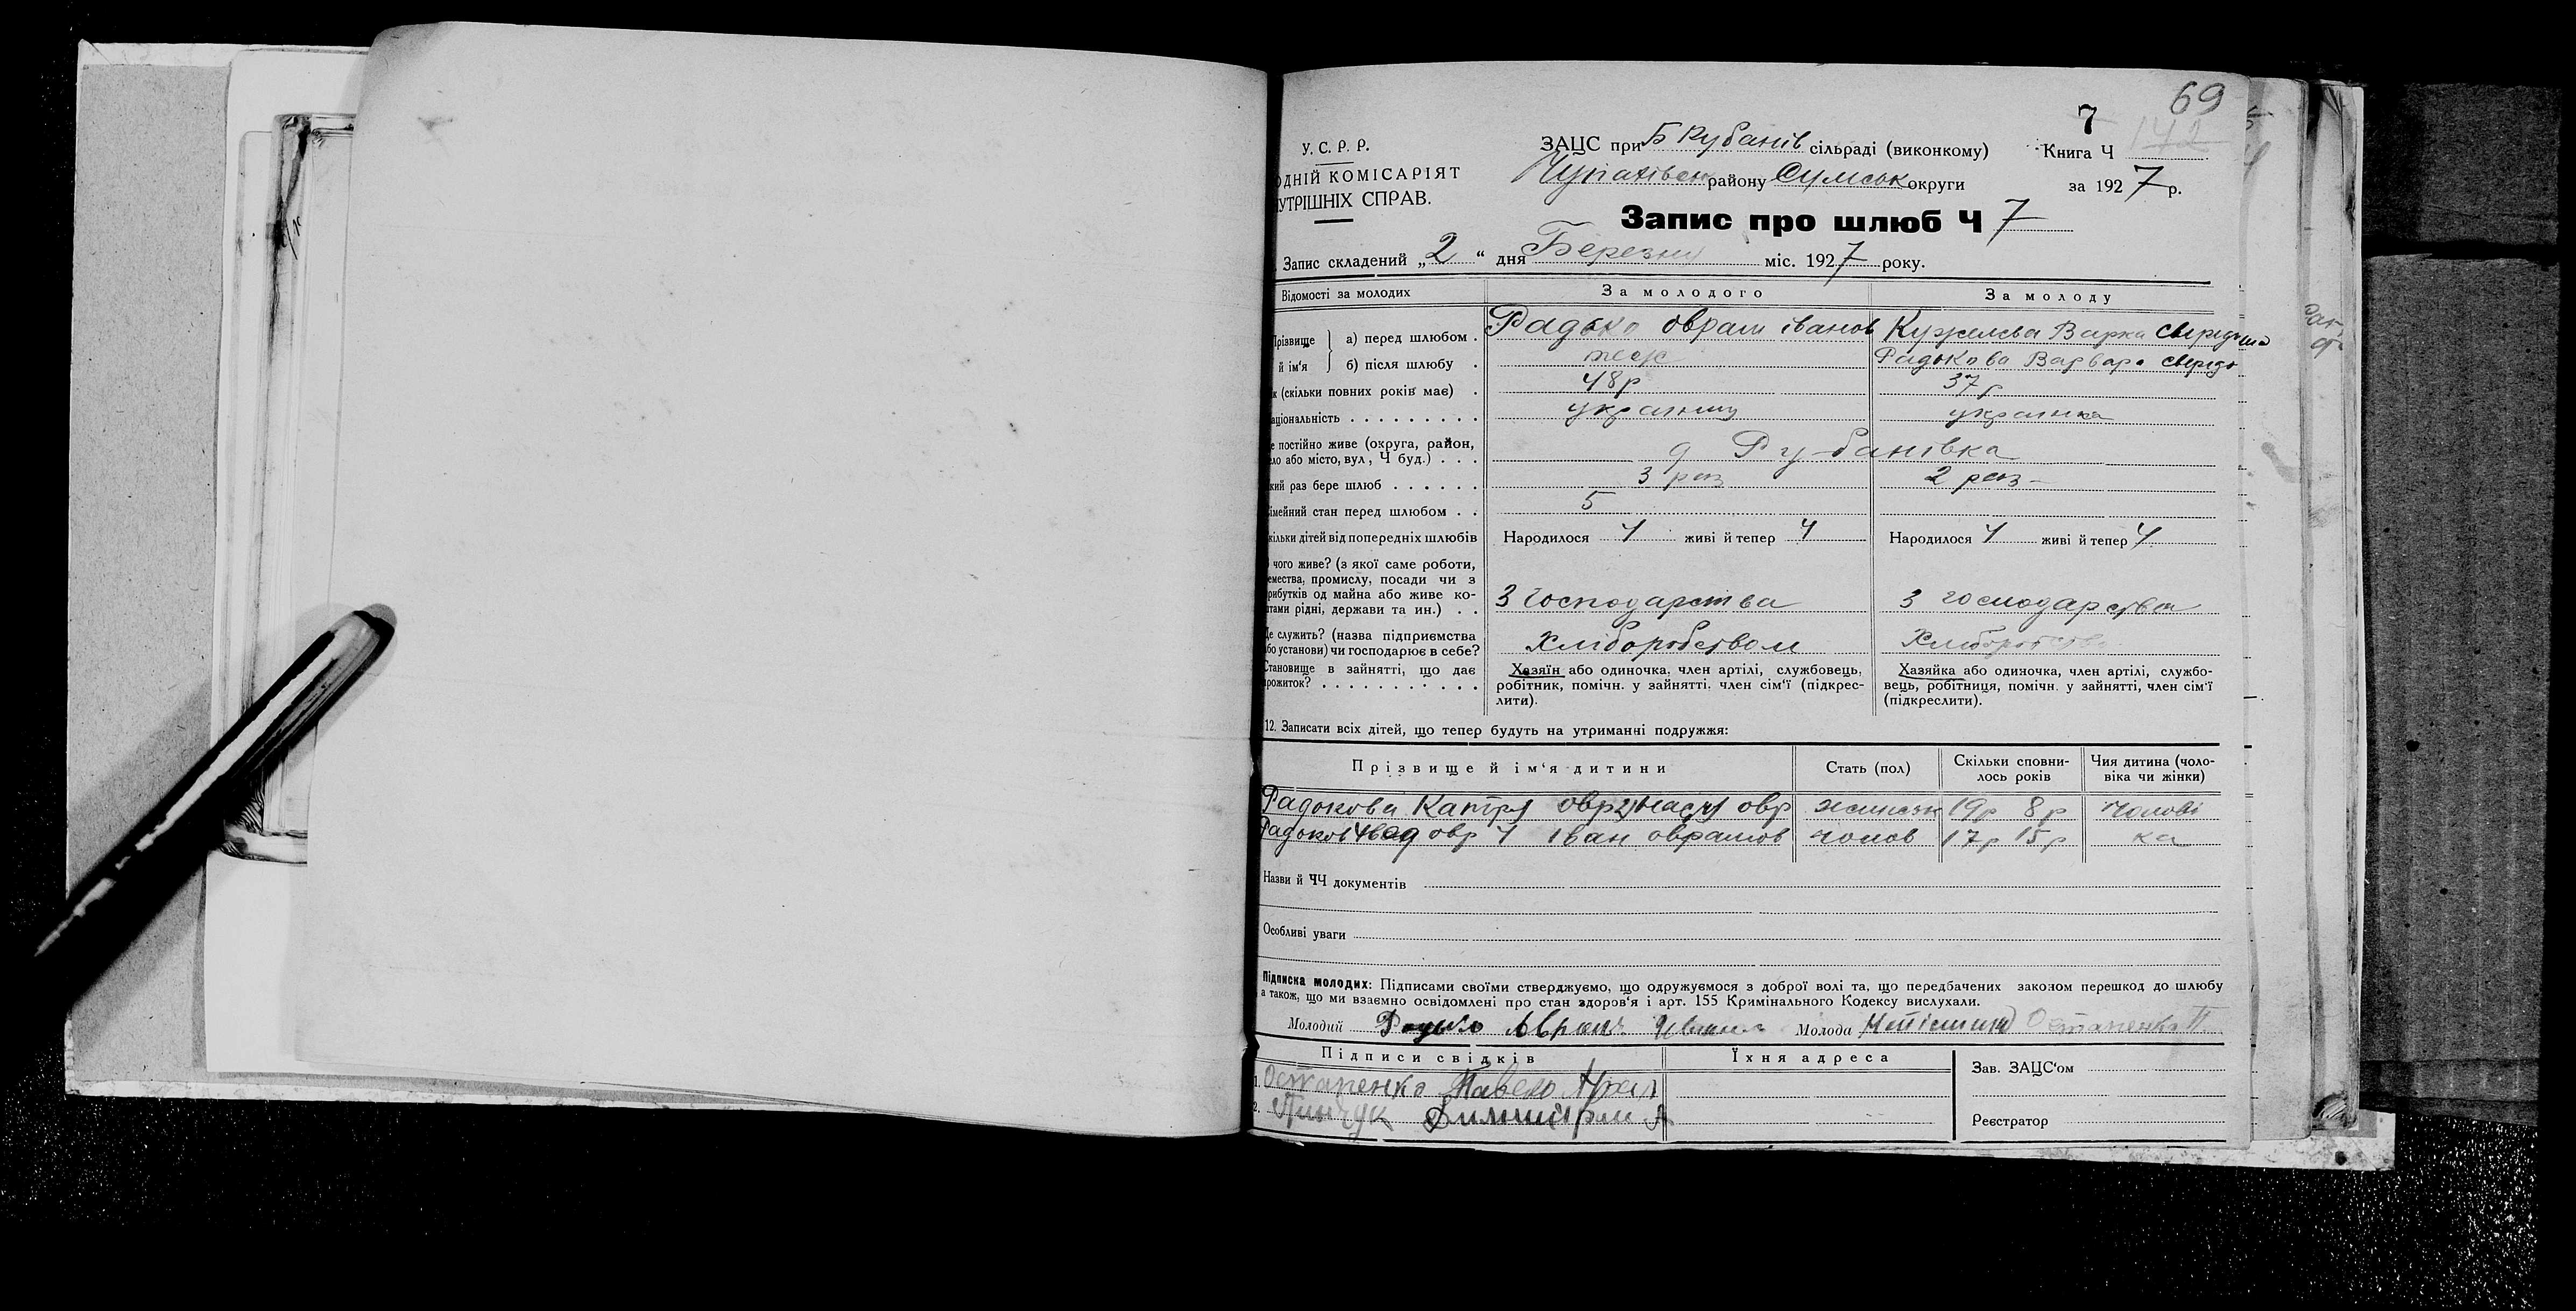 69
7
142
У. С. Р. Р.
ОДНІЙ КОМІСАРІЯТ
УТРІШНІХ СПРАВ.
ЗАЦС при Б Рубанів сільраді (виконкому)
Книга Ч
Чупахівськ району Сумськ округи
за 1927 р.
Запис про шлюб Ч 7
Запис складений „2“ дня Березня міс. 1927 року.
Відомості за молодих
За молодого
За молоду
Прізвище й ім'я
а) перед шлюбом .
Радько оврам іванов
Кужелєва Варка свирид
б) після шлюбу .
теж
Радькова Варвара свирид
к (скільки повних років має) .
48р
37р
аціональність . . . . . . . . .
українец
українка
е постійно живе (округа, район,
ело або місто, вул, Ч буд.) . . .
д Рубанівка
кий раз бере шлюб . . . . . .
3 раз
2 раз
імейний стан перед шлюбом . .
5
кільки дітей від попередніх шлюбів
Народилося 4 живі й тепер 4
Народилося 4 живі й тепер 4
чого живе? (з якої саме роботи,
емества, промислу, посади чи з
рибутків од майна або живе ко-
штами рідні, держави та ин.) . .
З господарства
З господарства
Де служить? (назва підприємства
або установи) чи господарює в себе?
Хліборобством
Хлібороб
Становище в зайнятті, що дає
прожиток? . . . . . . . . . . .
Хазяїн або одиночка, член артілі, службовець,
робітник, помічн. у зайнятті, член сім'ї (підкрес-
лити).
Хазяйка або одиночка, член артілі, службо-
вець, робітниця, помічн. у зайнятті, член сім'ї
(підкреслити).
12. Записати всіх дітей, що тепер будуть на утриманні подружжя:
Прізвище й ім'я дитини
Стать (пол)
Скільки сповни-
лось років
Чия дитина (чоло-
віка чи жінки)
Радькова Катря овр 2) Настя овр
19р 8р
чолові
Радьков овр 4 Іван оврамов
чолов
17р 15р
ка
Назви й ЧЧ документів
Особливі уваги
Підписка молодих: Підписами своїми стверджуємо, що одружуємося з доброї волі та, що передбачених законом перешкод до шлюбу
а також, що ми взаємно освідомлені про стан здоров'я і арт. 155 Кримінального Кодексу вислухали.
Молодий Радько Аврам Иванов
Молода Остапенко П
Підписи свідків
Їхня адреса
Зав. ЗАЦС'ом
1. Остапенко Павело
2. Пинчук
Реєстратор